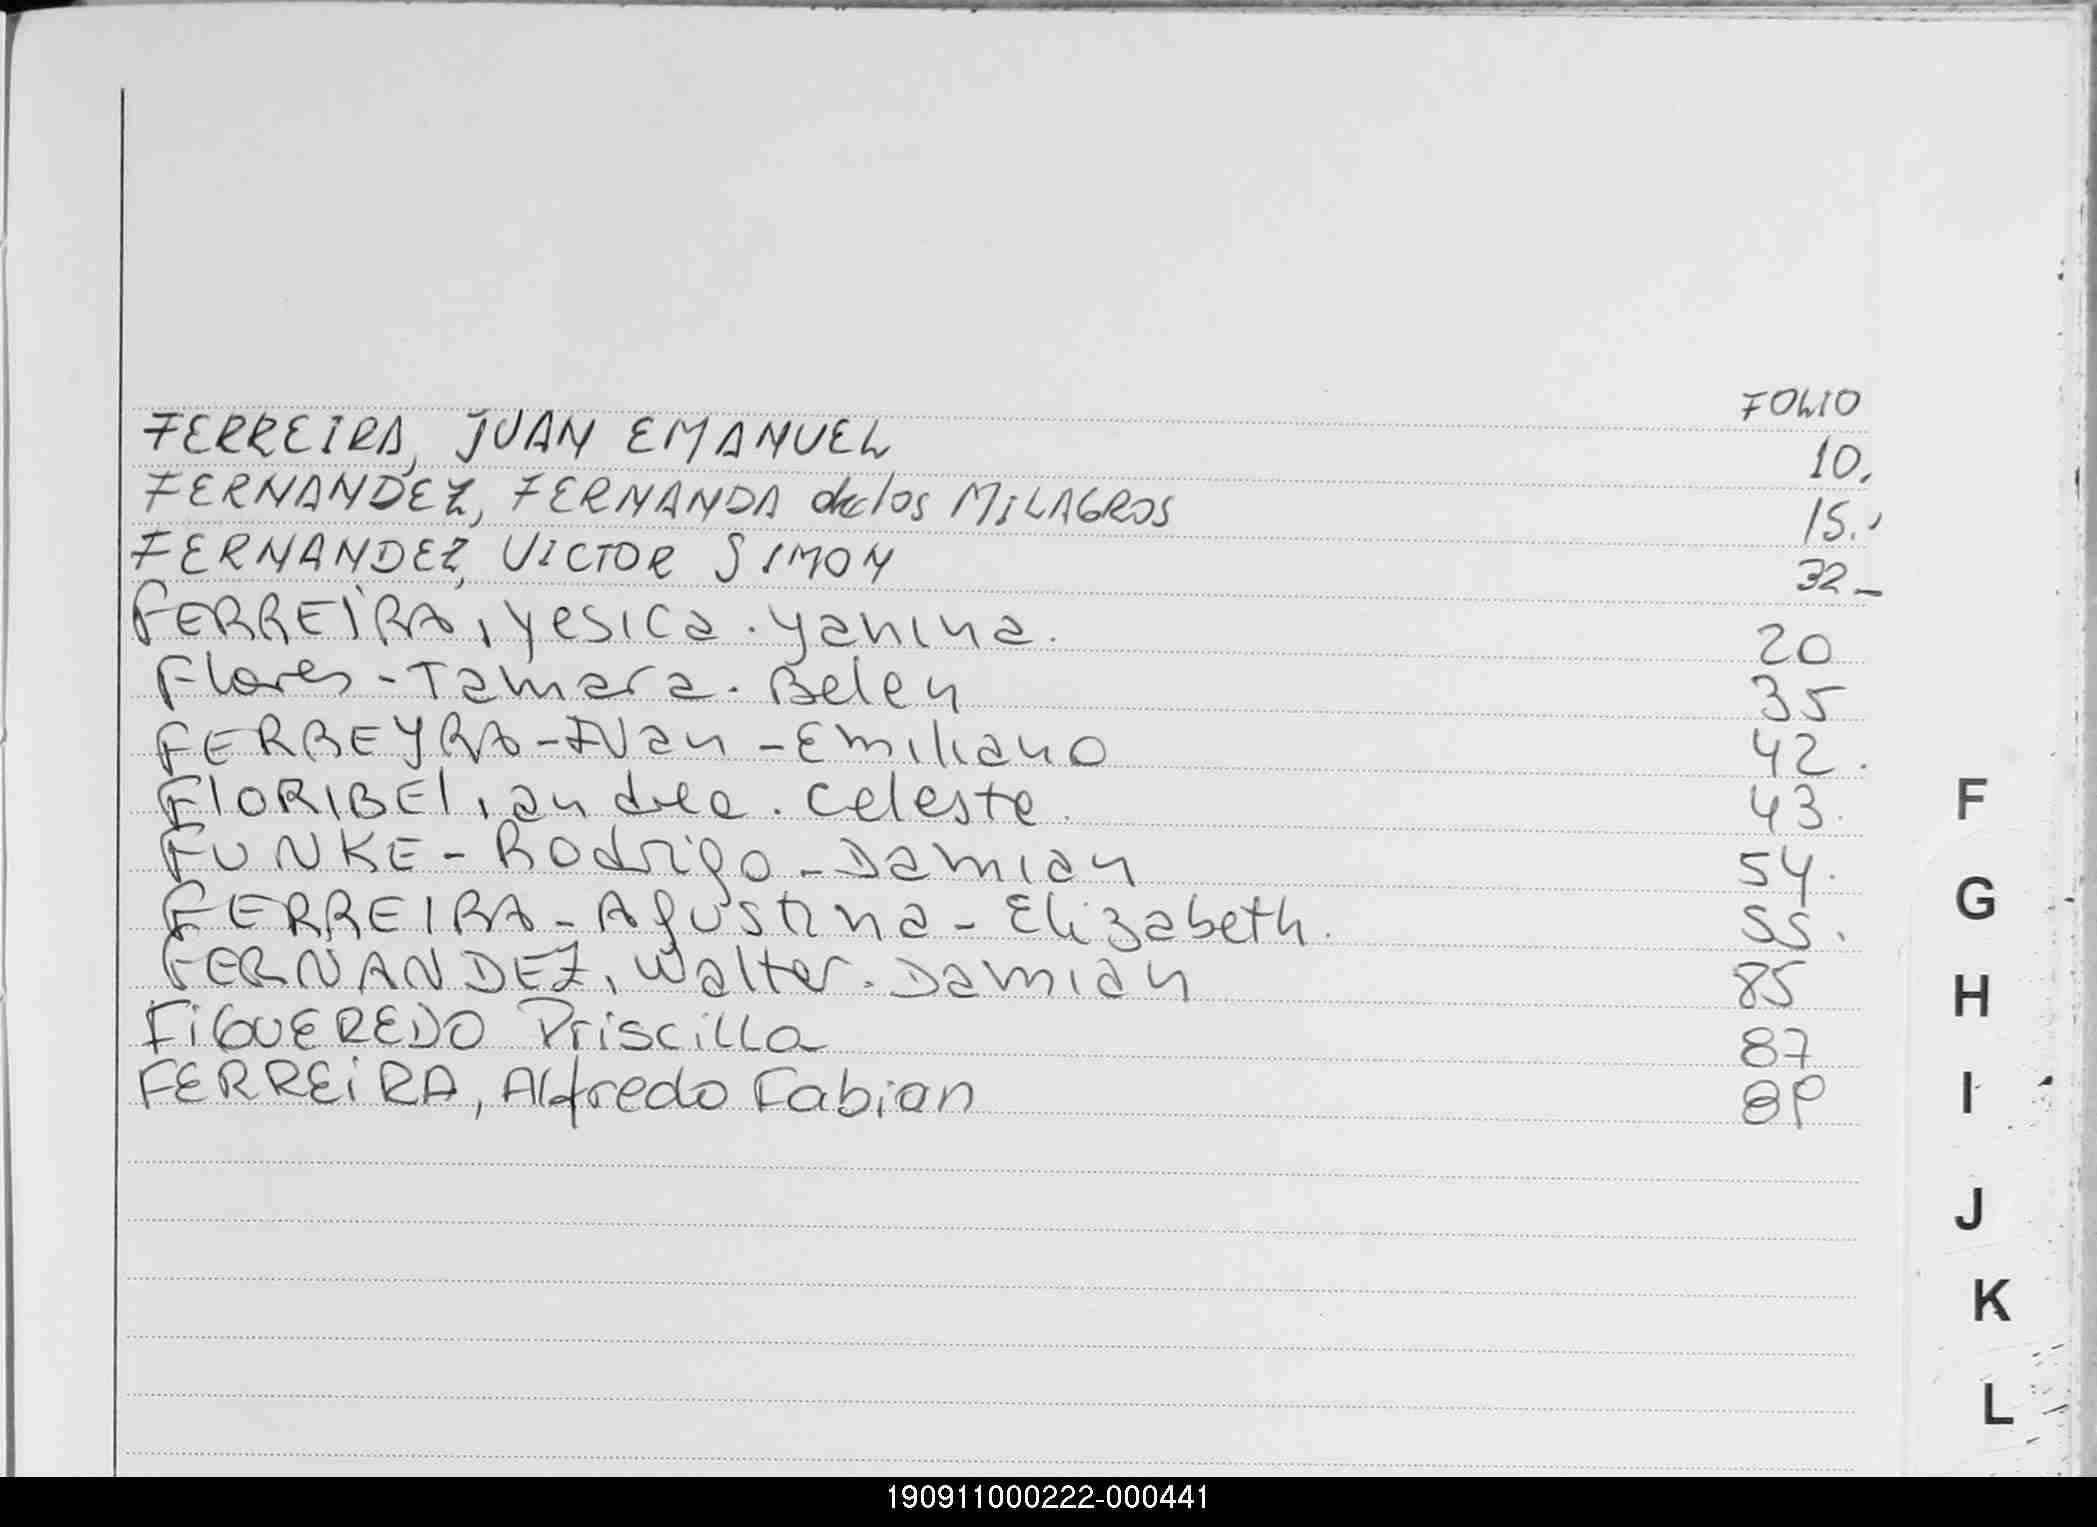 FOLIO
FERREIRA, JUAN EMANUEL 10.
FERNANDEZ, FERNANDA de los MILAGROS 15.
FERNANDEZ, VICTOR SIMON 32-
FERREIRA, yesica. yanina. 20
Flores - Tamara. Belen 35
FERREYRA - IVan - Emiliano 42.
FlORIBEl, andrea. celeste. 43.
FUNKE - Rodrigo - Damian 54.
FERREIRA - Agustina - Elizabeth. 55.
FERNANDEZ, Walter. Damian 85
FiGUEREDO Priscilla 87
FERREiRA, Alfredo Fabian 89
F
G
H
I
J
K
L
190911000222-000441